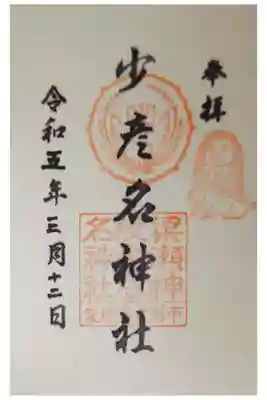 奉拝
少彦名神社
令和五年三月十二日